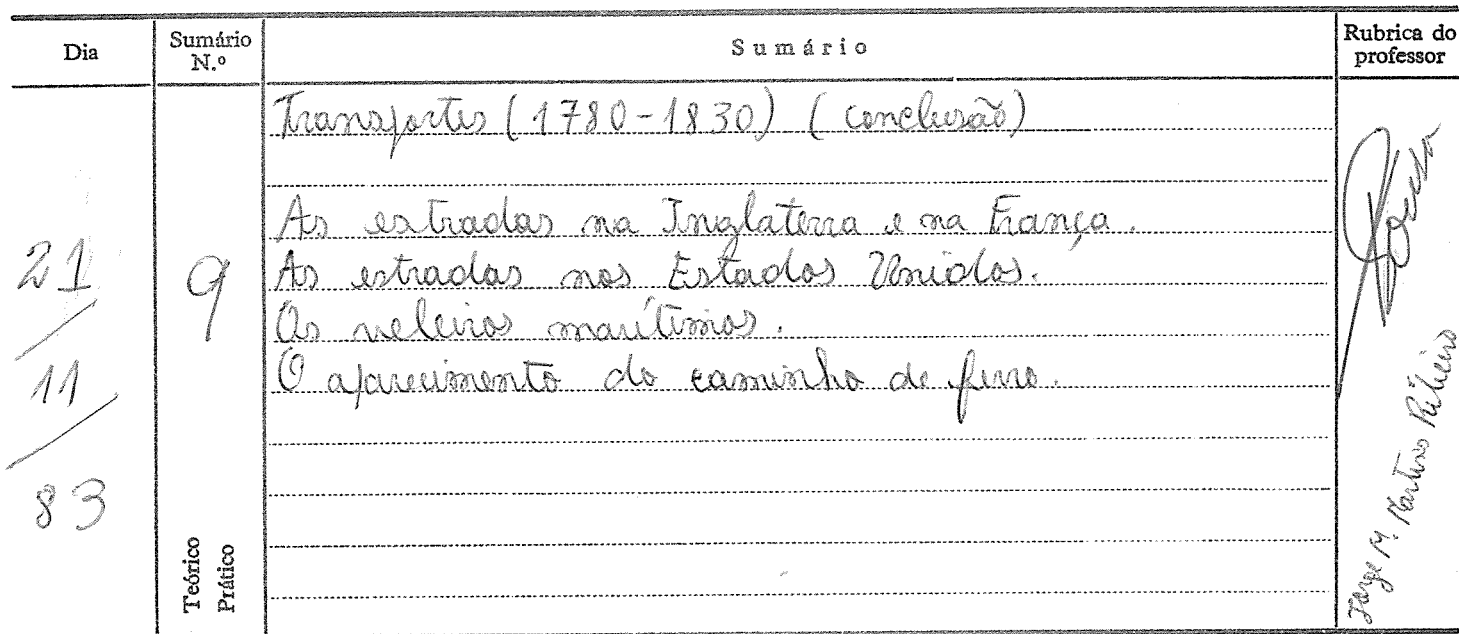 Dia
Sumário N.º
Sumário
Rubrica do professor
21/11/83
9
Teórico
Prático
Transportes (1780-1830) (conclusão)
As estradas na Inglaterra e na França.
As estradas nos Estados Unidos.
Os veleiros marítimos.
O aparecimento do caminho de ferro.
Jorge M. Martins Ribeiro